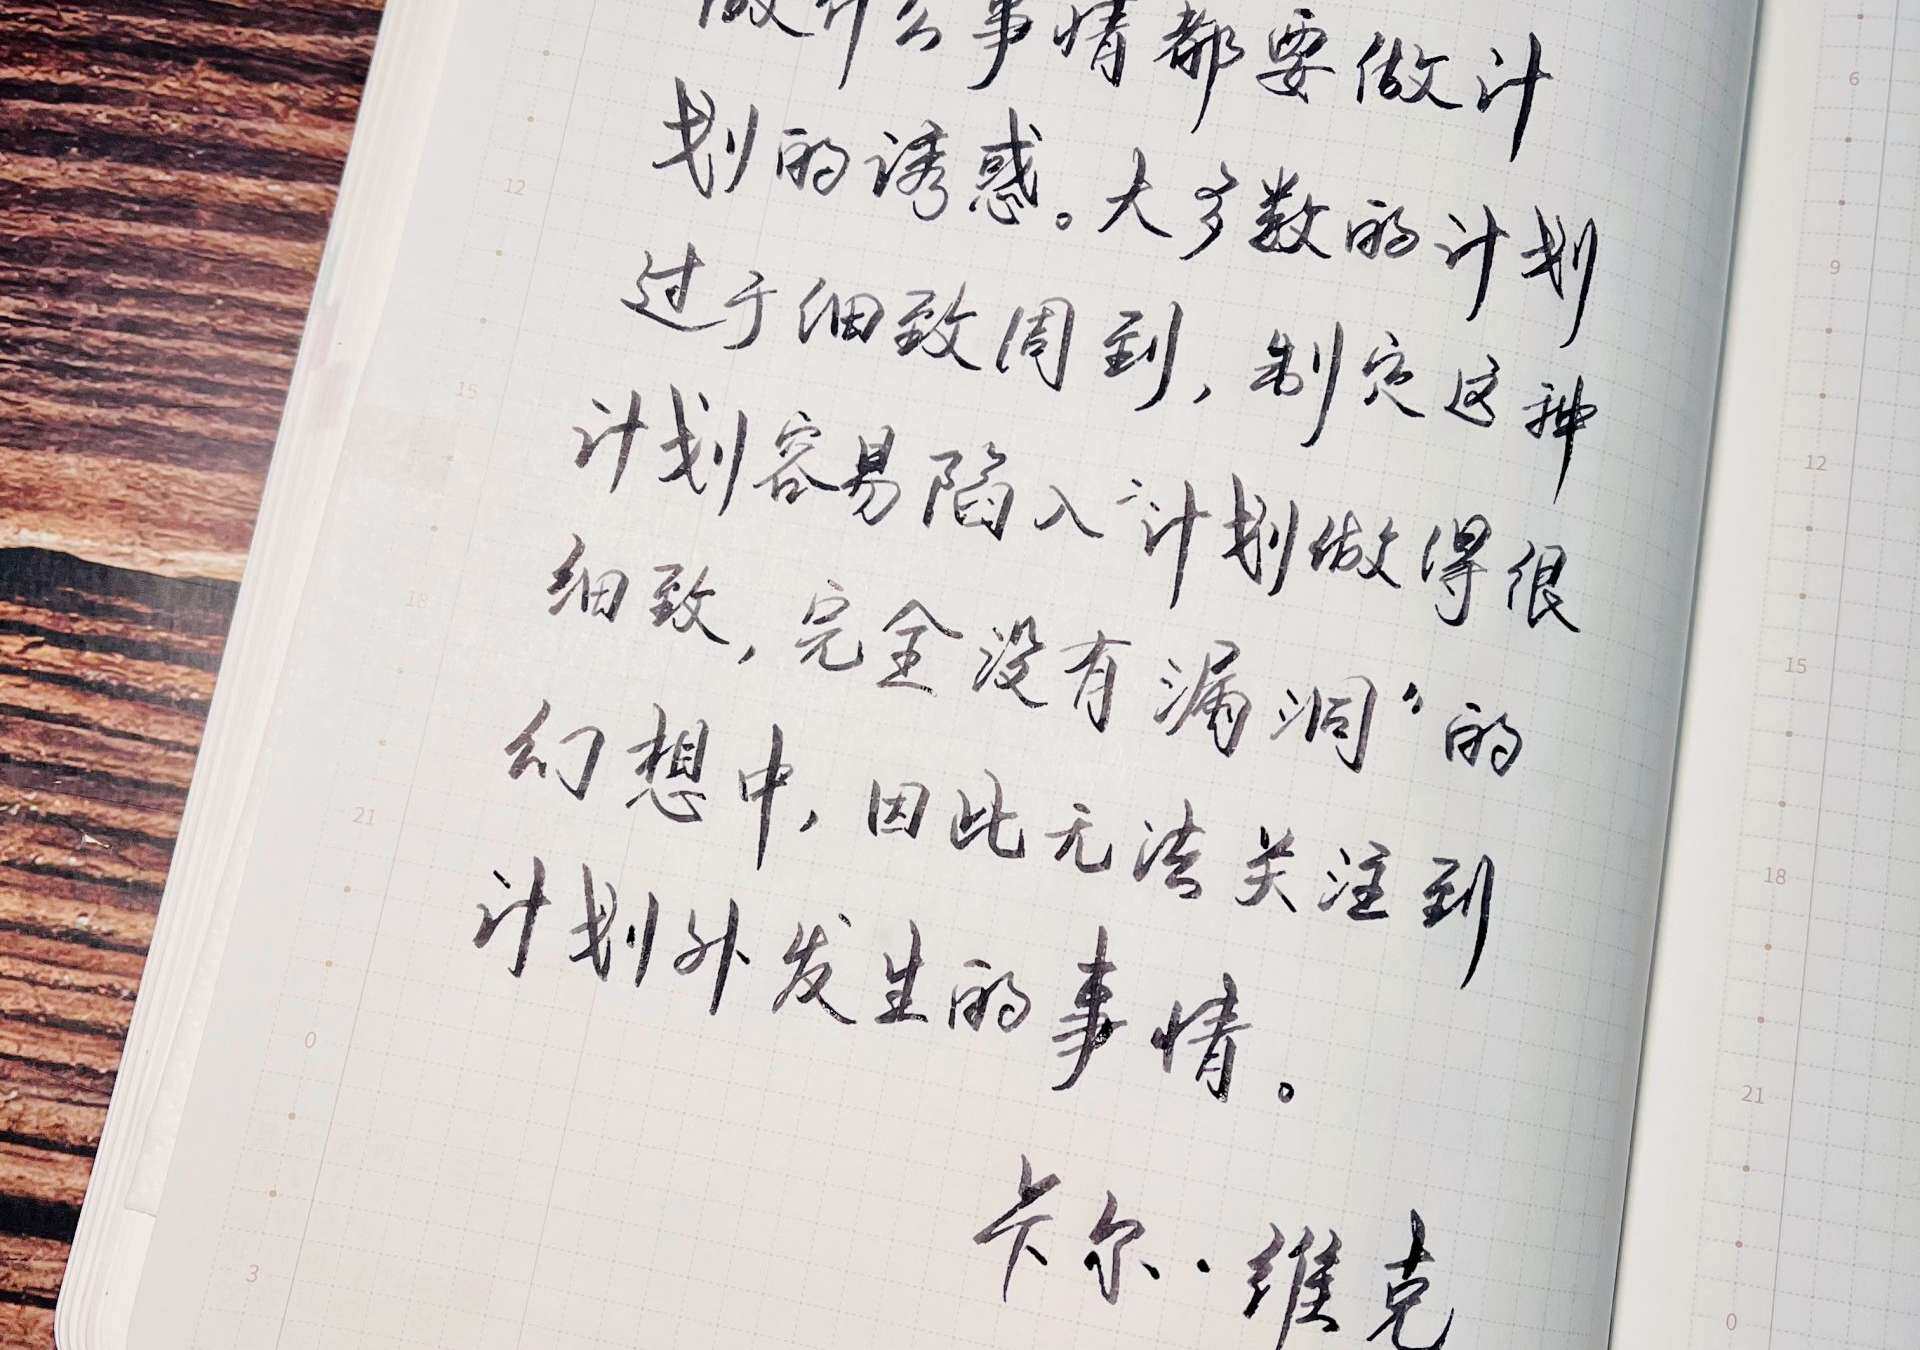 做什么事情都要做计
划的诱惑。大多数的计划
过于细致周到，制定这种
计划容易陷入“计划做得很
细致，完全没有漏洞”的
幻想中，因此无法关注到
计划外发生的事情。
卡尔·维克
12
15
18
21
0
3
6
9
12
15
18
21
0